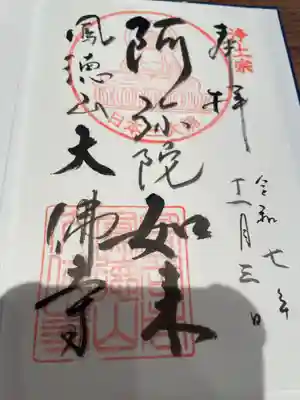 浄土宗
奉拝
令和七年
十一月三日
阿弥陀如来
鳳徳山大佛寺